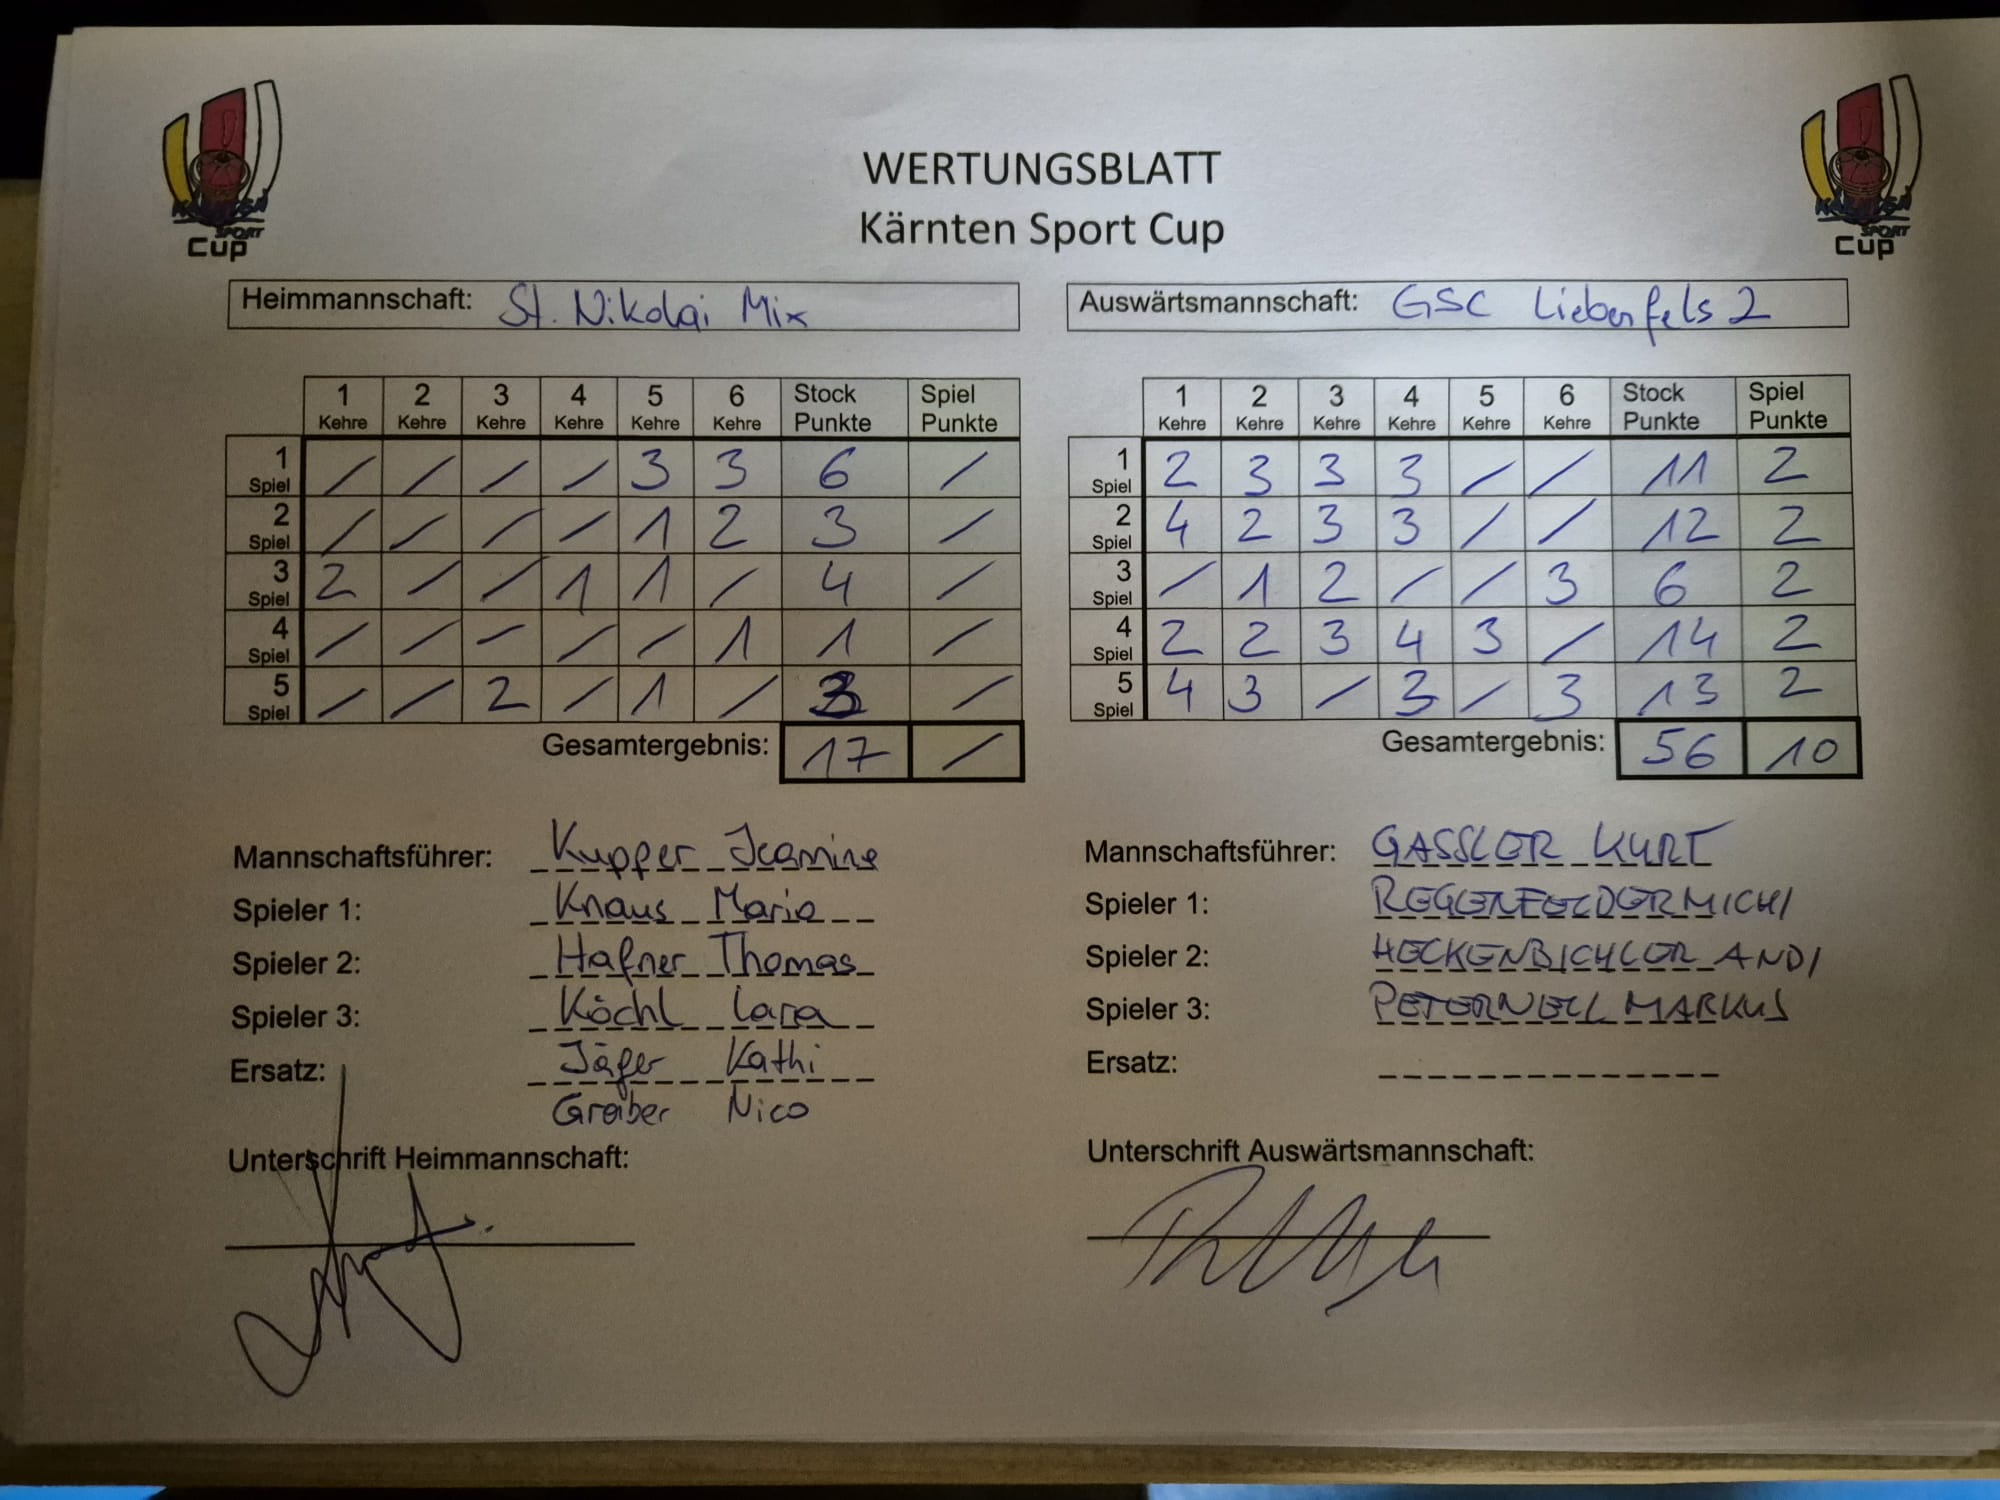 KÄRNTEN SPORT Cup
KÄRNTEN SPORT Cup
WERTUNGSBLATT
Kärnten Sport Cup
Heimmannschaft: St. Nikolai Mix
Auswärtsmannschaft: GSC Liebenfels 2
1 Kehre 2 Kehre 3 Kehre 4 Kehre 5 Kehre 6 Kehre Stock Punkte Spiel Punkte
1 Spiel / / / / 3 3 6 /
2 Spiel / / / / 1 2 3 /
3 Spiel 2 / / 1 1 / 4 /
4 Spiel / / - / / 1 1 /
5 Spiel / / 2 / 1 / 3 /
Gesamtergebnis: 17 /
1 Kehre 2 Kehre 3 Kehre 4 Kehre 5 Kehre 6 Kehre Stock Punkte Spiel Punkte
1 Spiel 2 3 3 3 / / 11 2
2 Spiel 4 2 3 3 / / 12 2
3 Spiel / 1 2 / / 3 6 2
4 Spiel 2 2 3 4 3 / 14 2
5 Spiel 4 3 / 3 / 3 13 2
Gesamtergebnis: 56 10
Mannschaftsführer: Kupper Jeamine
Spieler 1: Knaus Mario
Spieler 2: Hafner Thomas
Spieler 3: Köchl Lara
Ersatz: Jäger Kathi
Nico
Unterschrift Heimmannschaft:
Mannschaftsführer: GASSLER KURT
Spieler 1: REGENFELDER MICHI
Spieler 2: HECKENBICHLER ANDI
Spieler 3: PETERNELL MARKUS
Ersatz:
Unterschrift Auswärtsmannschaft: